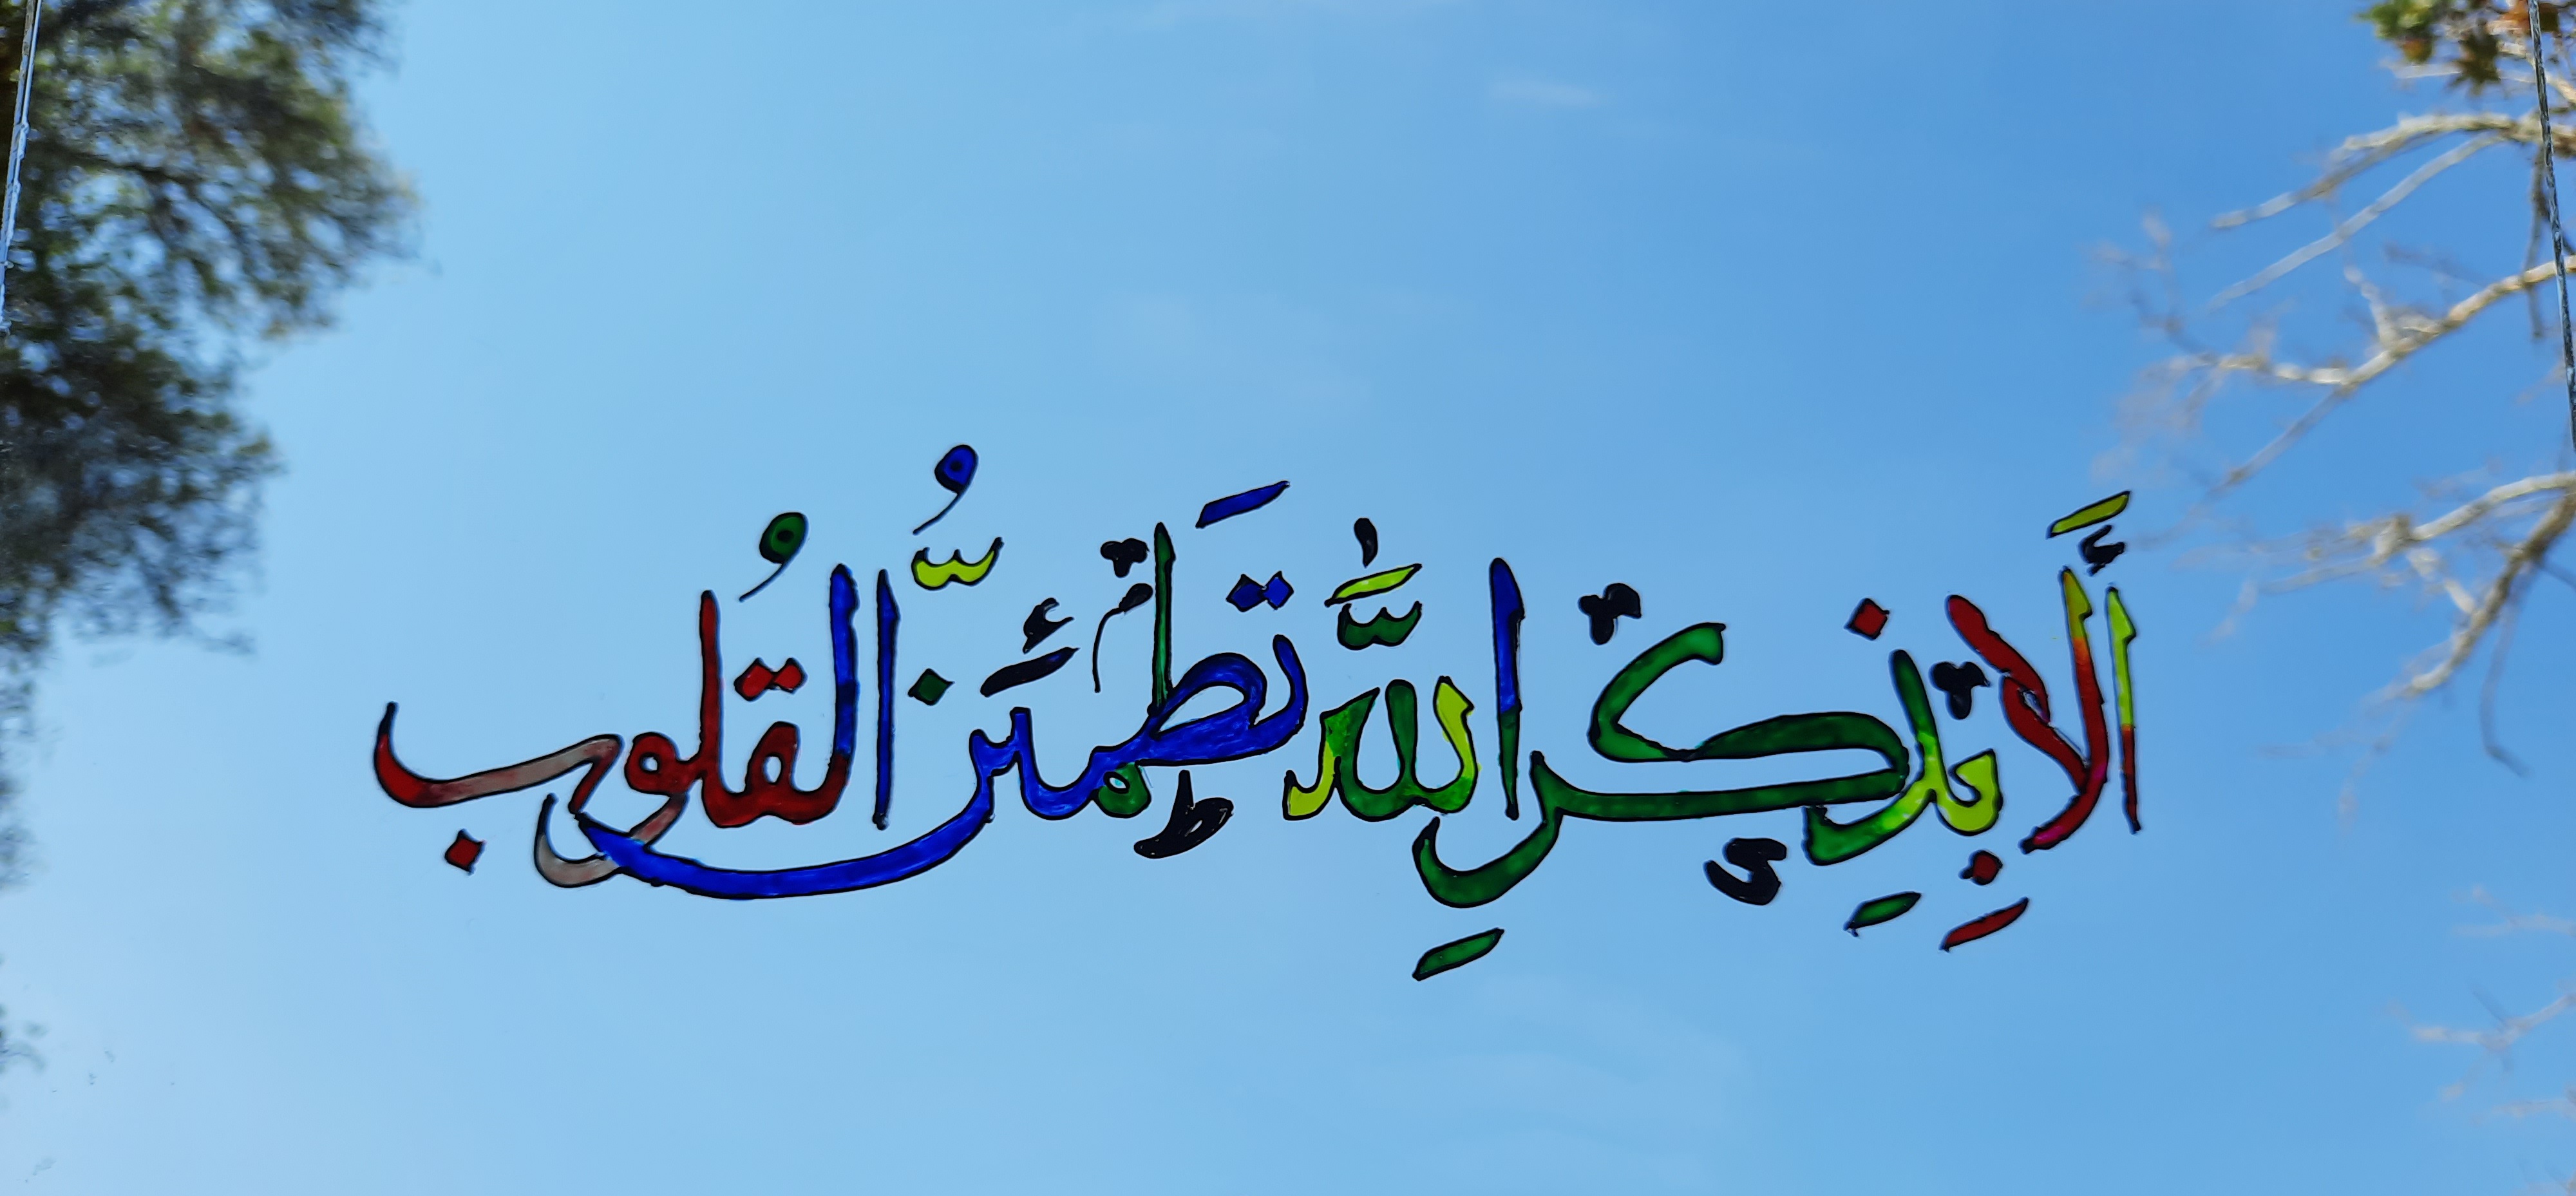 أَلَا بِذِكرِ اللَّه تَطمَئنُّ القُلُوب